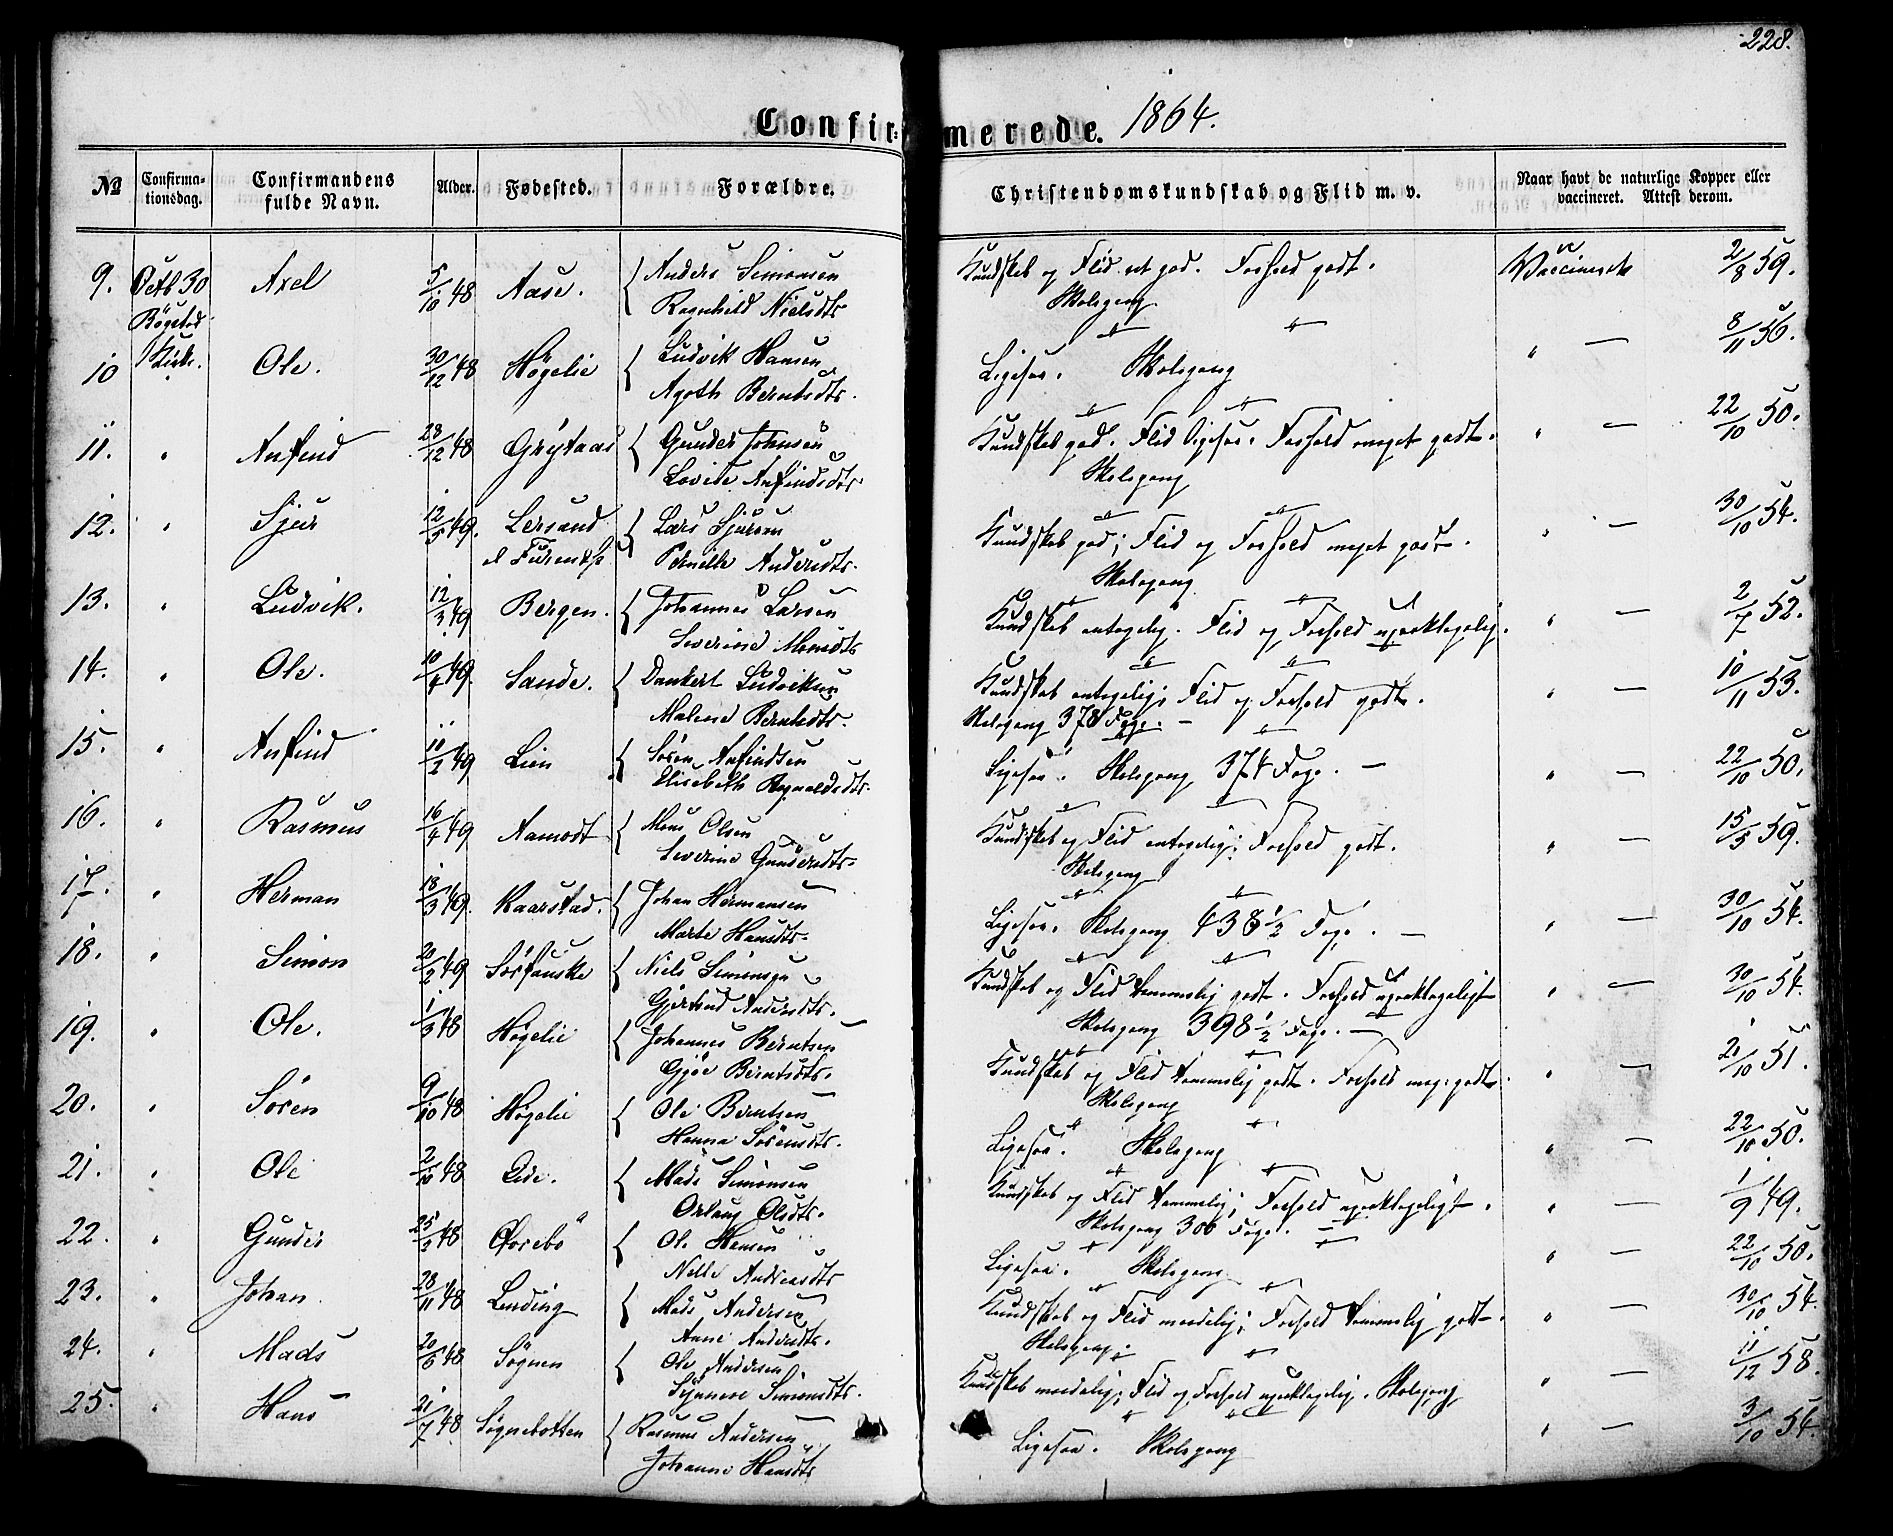 228.
Confirmerede. 1864.
№ Confirmationsdag. Confirmandens fulde Navn. Alder. Fødested. Forældre. Christendomskundskab og Flid m. v. Naar havt de naturlige Kopper eller vaccineret. Attest derom.
9. Octb 30 Axel 5/10 48 Aase. Anders Simonsen Kundskab og Flid ret god. Forhold godt. Vaccineret 2/8 59.
Kirke. Ragnhild Nielsdtr Skolegang
10 Ole. 30/12 48 Høgelie Ludvik Hansen Ligesaa. Skolegang " — 8/11 56.
Agoth Berntsdtr.
11. " Anfind 28/12 48 Grytaas Gunder Johnsen Kundskab god. Flid ligesaa. Forhold meget godt. " — 22/10 50.
Lovise Anfindsdtr Skolegang
12. " Sjur 12/5 49. Lersund Lars Sjursen Kundskab god; Flid og Forhold meget godt. " — 30/10 54.
Pernille Andersdtr. Skolegang
13. " Ludvik. 12/3 49 Bergen. Johannes Larsen Kundskab antagelig. Flid og Forhold upaaklagelig. " — 2/7 52.
Severine Monsdtr
14. " Ole. 10/4 49. Sande. Dankert Ludviksen Kundskab antagelig; Flid og Forhold godt. " — 10/11 53.
Malene Berntsdtr. Skolegang 378 Dage. —
15. " Anfind 11/2 49 Lien Søren Anfindsen Ligesaa. Skolegang 374 Dage. — " — 22/10 50.
Elisabeth Ragnaldsdtr.
16. " Rasmus 16/4 49 Aamodt Mons Olsen Kundskab og Flid antagelig; Forhold godt. " — 15/5 59.
Severine Gundersdtr. Skolegang
17. " Herman 18/3 49. Kaarstad. Johan Hermansen Ligesaa. Skolegang 438 1/2 Dage. — " — 30/10 54.
Marte Hansdtr.
18. " Simon 20/2 49 Sørfanske Niels Simonsen Kundskab og Flid temmelig godt. Forhold upaaklageligt " — 30/10 54.
Gjertrud Andersdtr. Skolegang 398 1/2 Dage. —
19. " Ole. 1/9 48 Høgelie Johannes Berntsen Kundskab og Flid temmelig godt. Forhold meg: godt. " — 21/10 51.
Gjøe Berntsdtr. Skolegang
20. " Søren 9/10 48 Høgelie Ole Berntsen Ligesaa. Skolegang " — 22/10 50.
Hanna Sørensdtr.
21. " Ole 2/10 48 Eide. Mads Simonsen Kundskab og Flid temmelig; Forhold upaaklageligt. " — 1/9 49.
Orlaug Olsdtr. Skolegang 300 Dage. —
22. " Gunder 25/2 48 Øvrebø Ole Hansen Ligesaa. Skolegang " — 22/10 50.
Nille Andreasdtr
23. " Johan 28/11 48 Lending Mads Andersen Kundskab og Flid maadelig; Forhold temmelig godt. " — 30/10 54
Anne Andersdtr. Skolegang.
24. " Mads 20/6 48 Søgnen Ole Andersen Kundskab maadelig; Flid og Forhold upaaklagelig. Skolegang " — 11/12 58.
Synneve Simonsdtr.
25. " Hans 21/7 48 Søgnebotten Rasmus Andersen Ligesaa. Skolegang " — 3/10 54.
Johanne Hansdtr